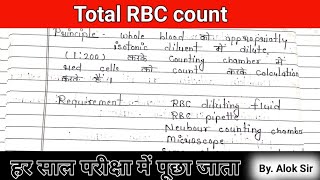 Total RBC count
Principle - whole blood को appropriatly
isotonic diluent में dilute
(1:200) करके counting chamber में
red cells को count करके calculation
करते हैं।
Requirement - RBC diluting fluid
RBC pipette
Neubour counting chamber
Microscope
हर साल परीक्षा में पूछा जाता
By. Alok Sir